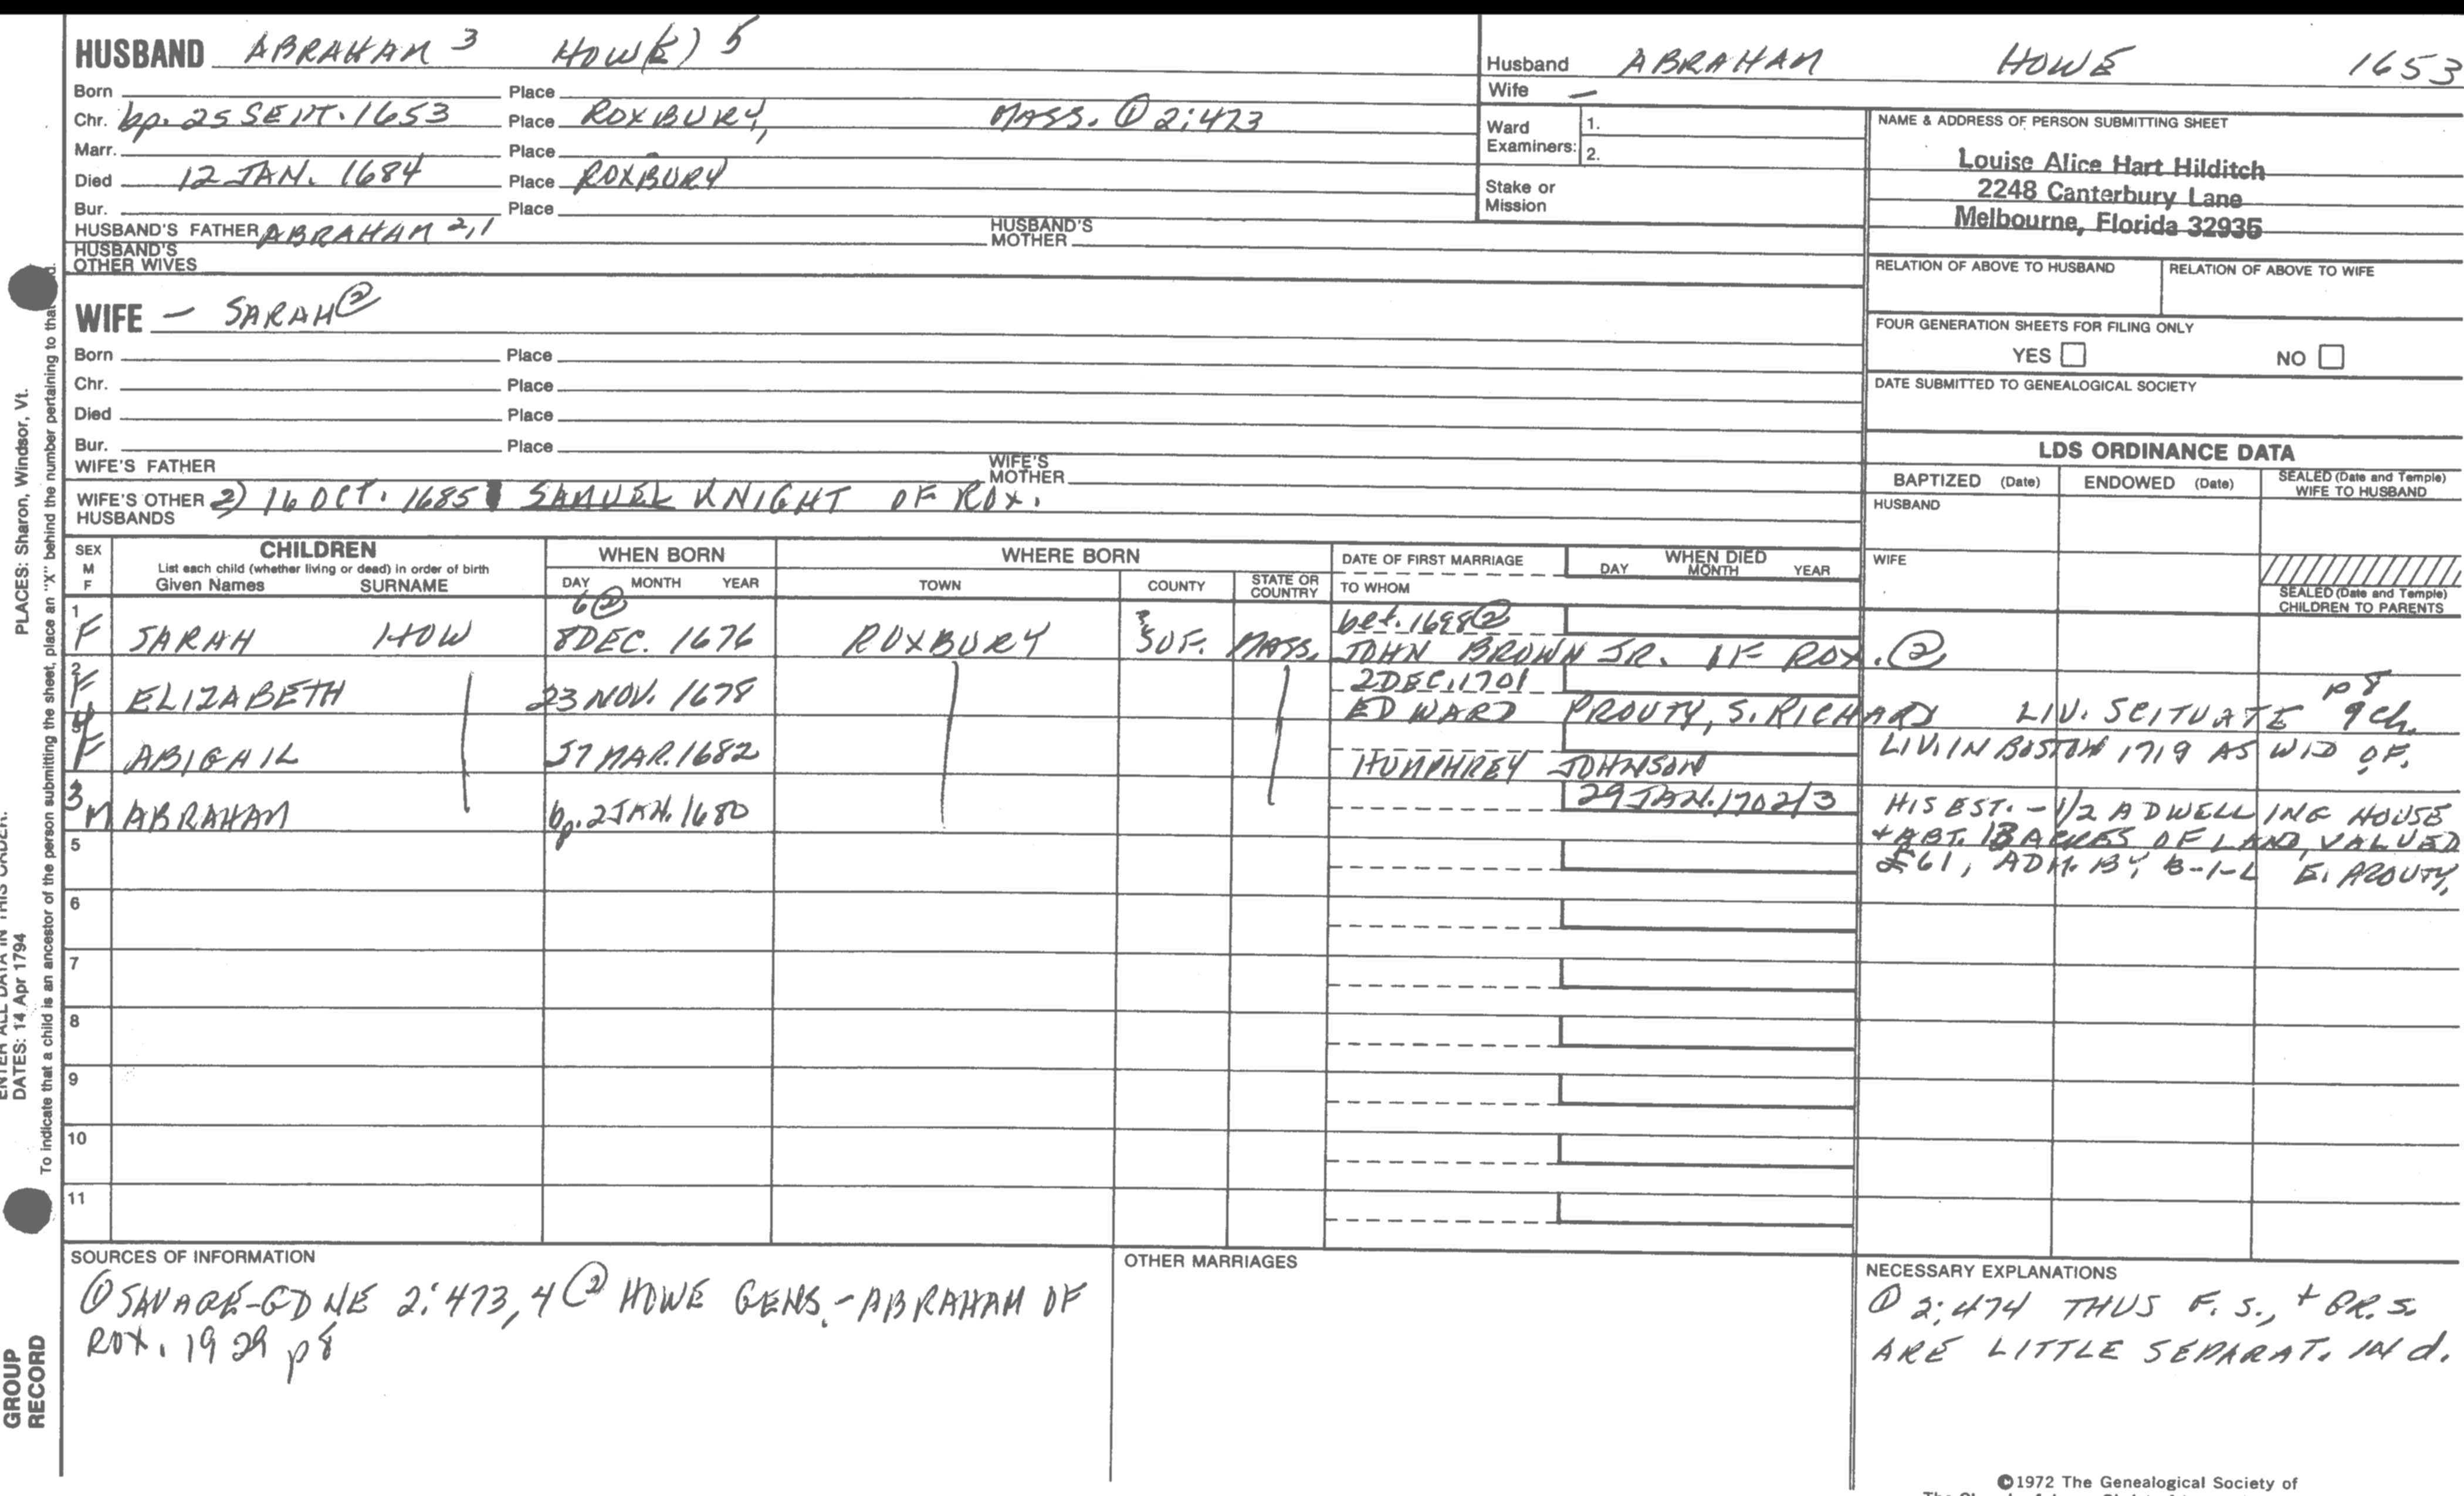 HUSBAND ABRAHAM 3 HOW(E) 5
Born Place
Chr. bp. 25 SEPT. 1653 Place ROXBURY, MASS. ① 2:473
Marr. Place
Died 12 JAN. 1684 Place ROXBURY
Bur. Place
HUSBAND'S FATHER ABRAHAM 2,1 HUSBAND'S MOTHER
HUSBAND'S OTHER WIVES
Husband ABRAHAM HOWE 1653
Wife –
Ward Examiners: 1.
2.
Stake or Mission
NAME & ADDRESS OF PERSON SUBMITTING SHEET
Louise Alice Hart Hilditch
2248 Canterbury Lane
Melbourne, Florida 32935
RELATION OF ABOVE TO HUSBAND RELATION OF ABOVE TO WIFE
FOUR GENERATION SHEETS FOR FILING ONLY
YES NO
DATE SUBMITTED TO GENEALOGICAL SOCIETY
WIFE – SARAH ②
Born Place
Chr. Place
Died Place
Bur. Place
WIFE'S FATHER WIFE'S MOTHER
WIFE'S OTHER HUSBANDS 2) 16 OCT. 1685 SAMUEL KNIGHT OF ROX.
LDS ORDINANCE DATA
BAPTIZED (Date) ENDOWED (Date) SEALED (Date and Temple) WIFE TO HUSBAND
HUSBAND
WIFE
SEALED (Date and Temple) CHILDREN TO PARENTS
SEX M F
CHILDREN
List each child (whether living or dead) in order of birth
Given Names SURNAME
WHEN BORN
DAY MONTH YEAR
WHERE BORN
TOWN COUNTY STATE OR COUNTRY
DATE OF FIRST MARRIAGE
TO WHOM
WHEN DIED
DAY MONTH YEAR
6② bet. 1698②
1 F SARAH HOW 8 DEC. 1676 ROXBURY SUF. MASS. JOHN BROWN JR. OF ROX. ②
2 DEC. 1701 p 8
2 F ELIZABETH 23 NOV. 1678 EDWARD PROUTY, S. RICHARD LIV. SCITUATE 9 ch.
4 F ABIGAIL MAR. 1682 HUMPHREY JOHNSON LIV. IN BOSTON 1719 AS WID OF.
29 JAN. 1702/3
3 M ABRAHAM bp. 2 JAN. 1680 HIS EST. – 1/2 A DWELLING HOUSE
+ ABT. 13 ACRES OF LAND, VALUED
£61, ADM. BY B-I-L E. PROUTY,
5
6
7
8
9
10
11
SOURCES OF INFORMATION
① SAVAGE-GD NE 2:473,4 ② HOWE GENS. – ABRAHAM OF
ROX. 1929 p8
OTHER MARRIAGES
NECESSARY EXPLANATIONS
① 2:474 THUS F. S., + GR. S.
ARE LITTLE SEPARAT. IN d.
©1972 The Genealogical Society of
PLACES: Sharon, Windsor, Vt.
ENTER ALL DATA IN THIS ORDER:
DATES: 14 Apr 1794
To indicate that a child is an ancestor of the person submitting the sheet, place an "X" behind the number pertaining to that
GROUP
RECORD